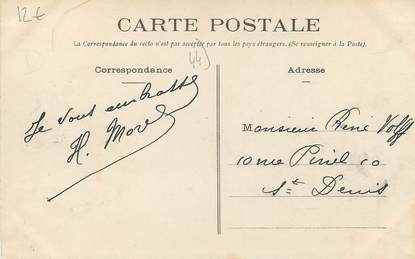 12€
CARTE POSTALE
La Correspondance du recto n'est pas acceptée par tous les pays étrangers. (Se renseigner à la Poste).
44)
Correspondance
Adresse
Je vous embrasse
H. Morel
Monsieur René Wolff
10 rue Pinel 10
St Denis